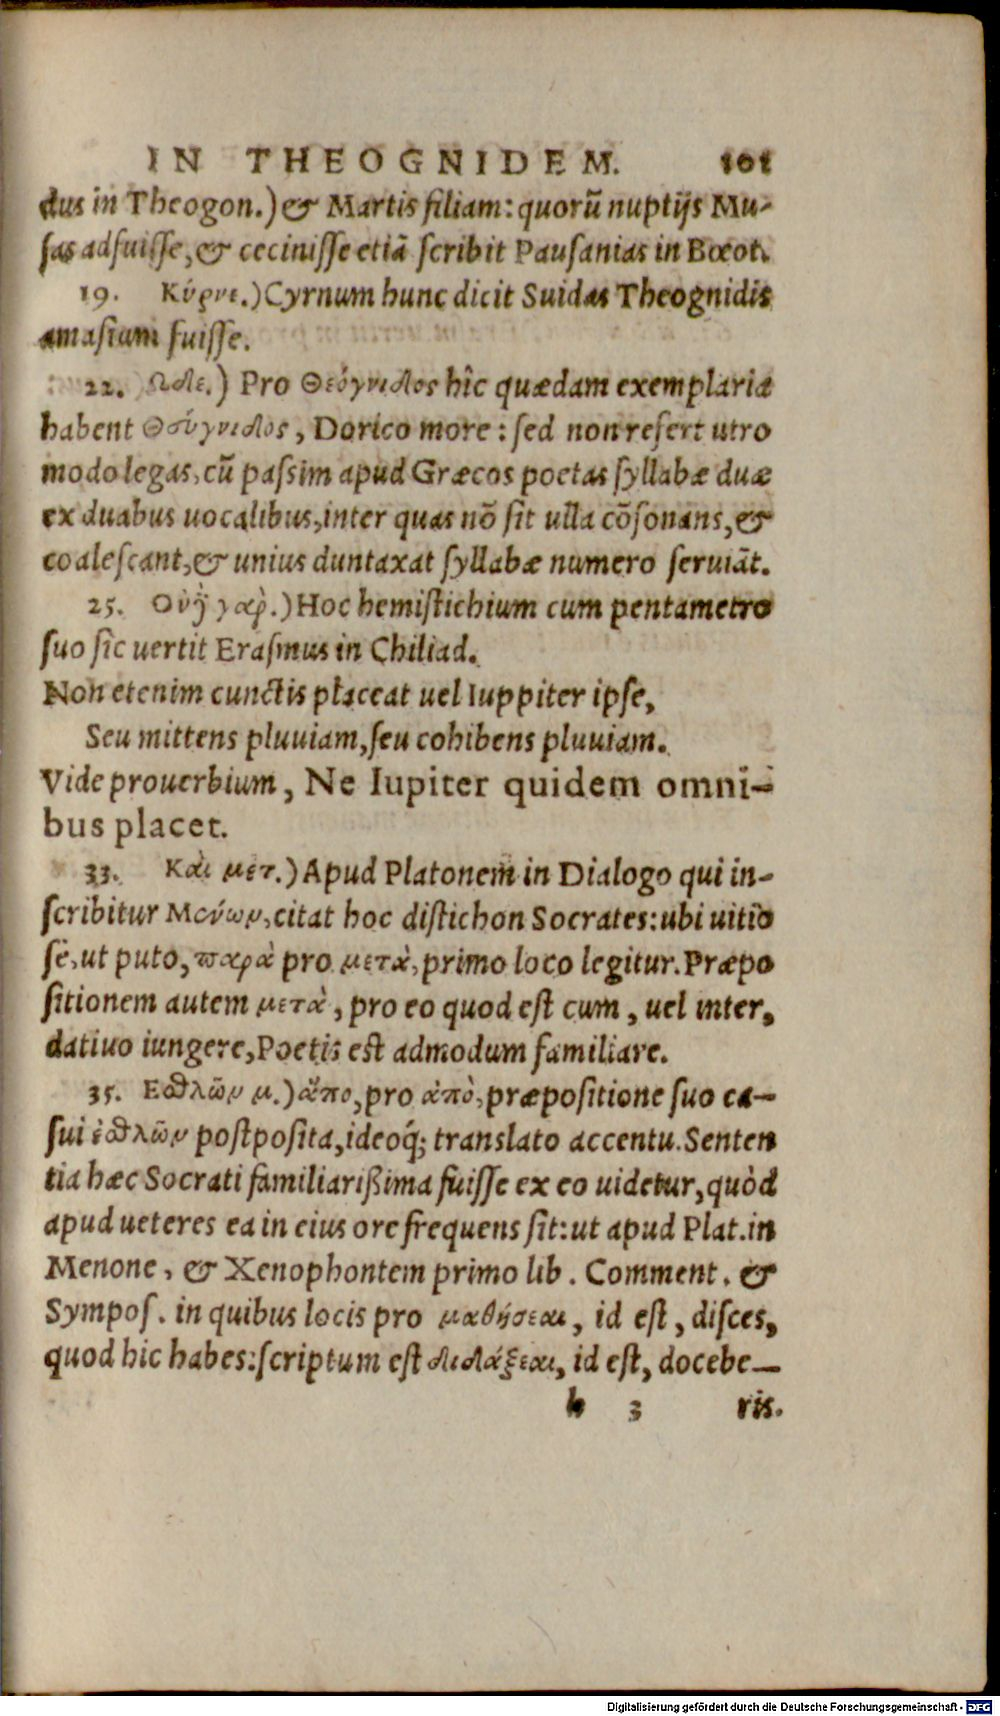 IN THEOGNIDEM. 101
dus in Theogon.) & Martis filiam: quorũ nuptijs Mu-
sas adfuisse, & cecinisse etiã scribit Pausanias in Bœot.
19. Κύρνε.) Cyrnum hunc dicit Suidas Theognidis
amasium fuisse.
22. Ωδε.) Pro Θεόγνιδος hîc quædam exemplaria
habent Θεύγνιδος, Dorico more: sed non refert utro
modo legas, cũ passim apud Græcos poetas syllabæ duæ
ex duabus uocalibus, inter quas nõ sit ulla cõsonans, &
coalescant, & unius duntaxat syllabæ numero seruiãt.
25. Οὐ γὰρ.) Hoc hemistichium cum pentametro
suo sic uertit Erasmus in Chiliad.
Non etenim cunctis placeat uel Iuppiter ipse,
Seu mittens pluuiam, seu cohibens pluuiam.
Vide prouerbium, Ne Iupiter quidem omni-
bus placet.
33. Καὶ μετ.) Apud Platonem in Dialogo qui in-
scribitur Μένων, citat hoc distichon Socrates: ubi uitio
sè, ut puto, παρὰ pro μετὰ, primo loco legitur. Præpo
sitionem autem μετὰ, pro eo quod est cum, uel inter,
datiuo iungere, Poetis est admodum familiare.
35. Εσθλῶν μ.) ἄπο, pro ἀπὸ, præpositione suo ca-
sui ἐσθλῶν postposita, ideoq́; translato accentu. Senten
tia hæc Socrati familiarißima fuisse ex eo uidetur, quòd
apud ueteres ea in eius ore frequens sit: ut apud Plat. in
Menone, & Xenophontem primo lib. Comment. &
Sympos. in quibus locis pro μαθήσεαι, id est, disces,
quod hic habes: scriptum est διδάξεαι, id est, docebe-
h 3 ris.
Digitalisierung gefördert durch die Deutsche Forschungsgemeinschaft - DFG